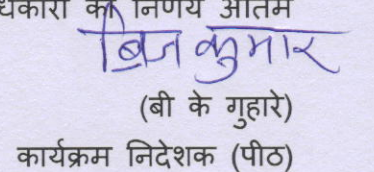 धकारी का निर्णय अंतिम
ब्रिज कुमार
(बी के गुहारे)
कार्यक्रम निदेशक (पीठ)